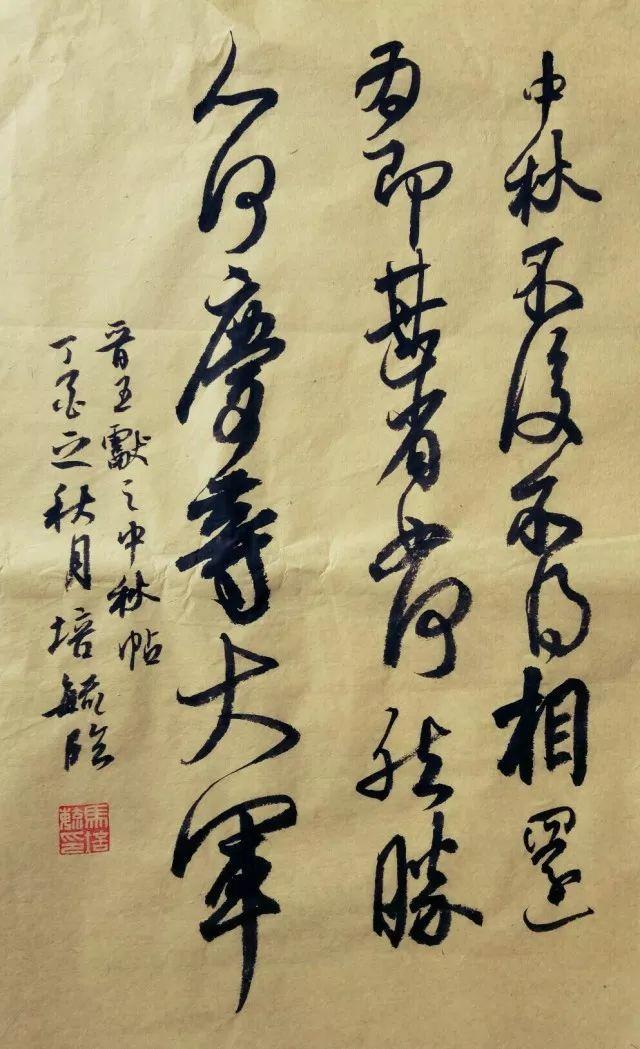 中秋不復不得相還
為即甚省如何然勝
人何慶等大軍
晉王獻之中秋帖
丁酉之秋月培毓臨
馬培毓印